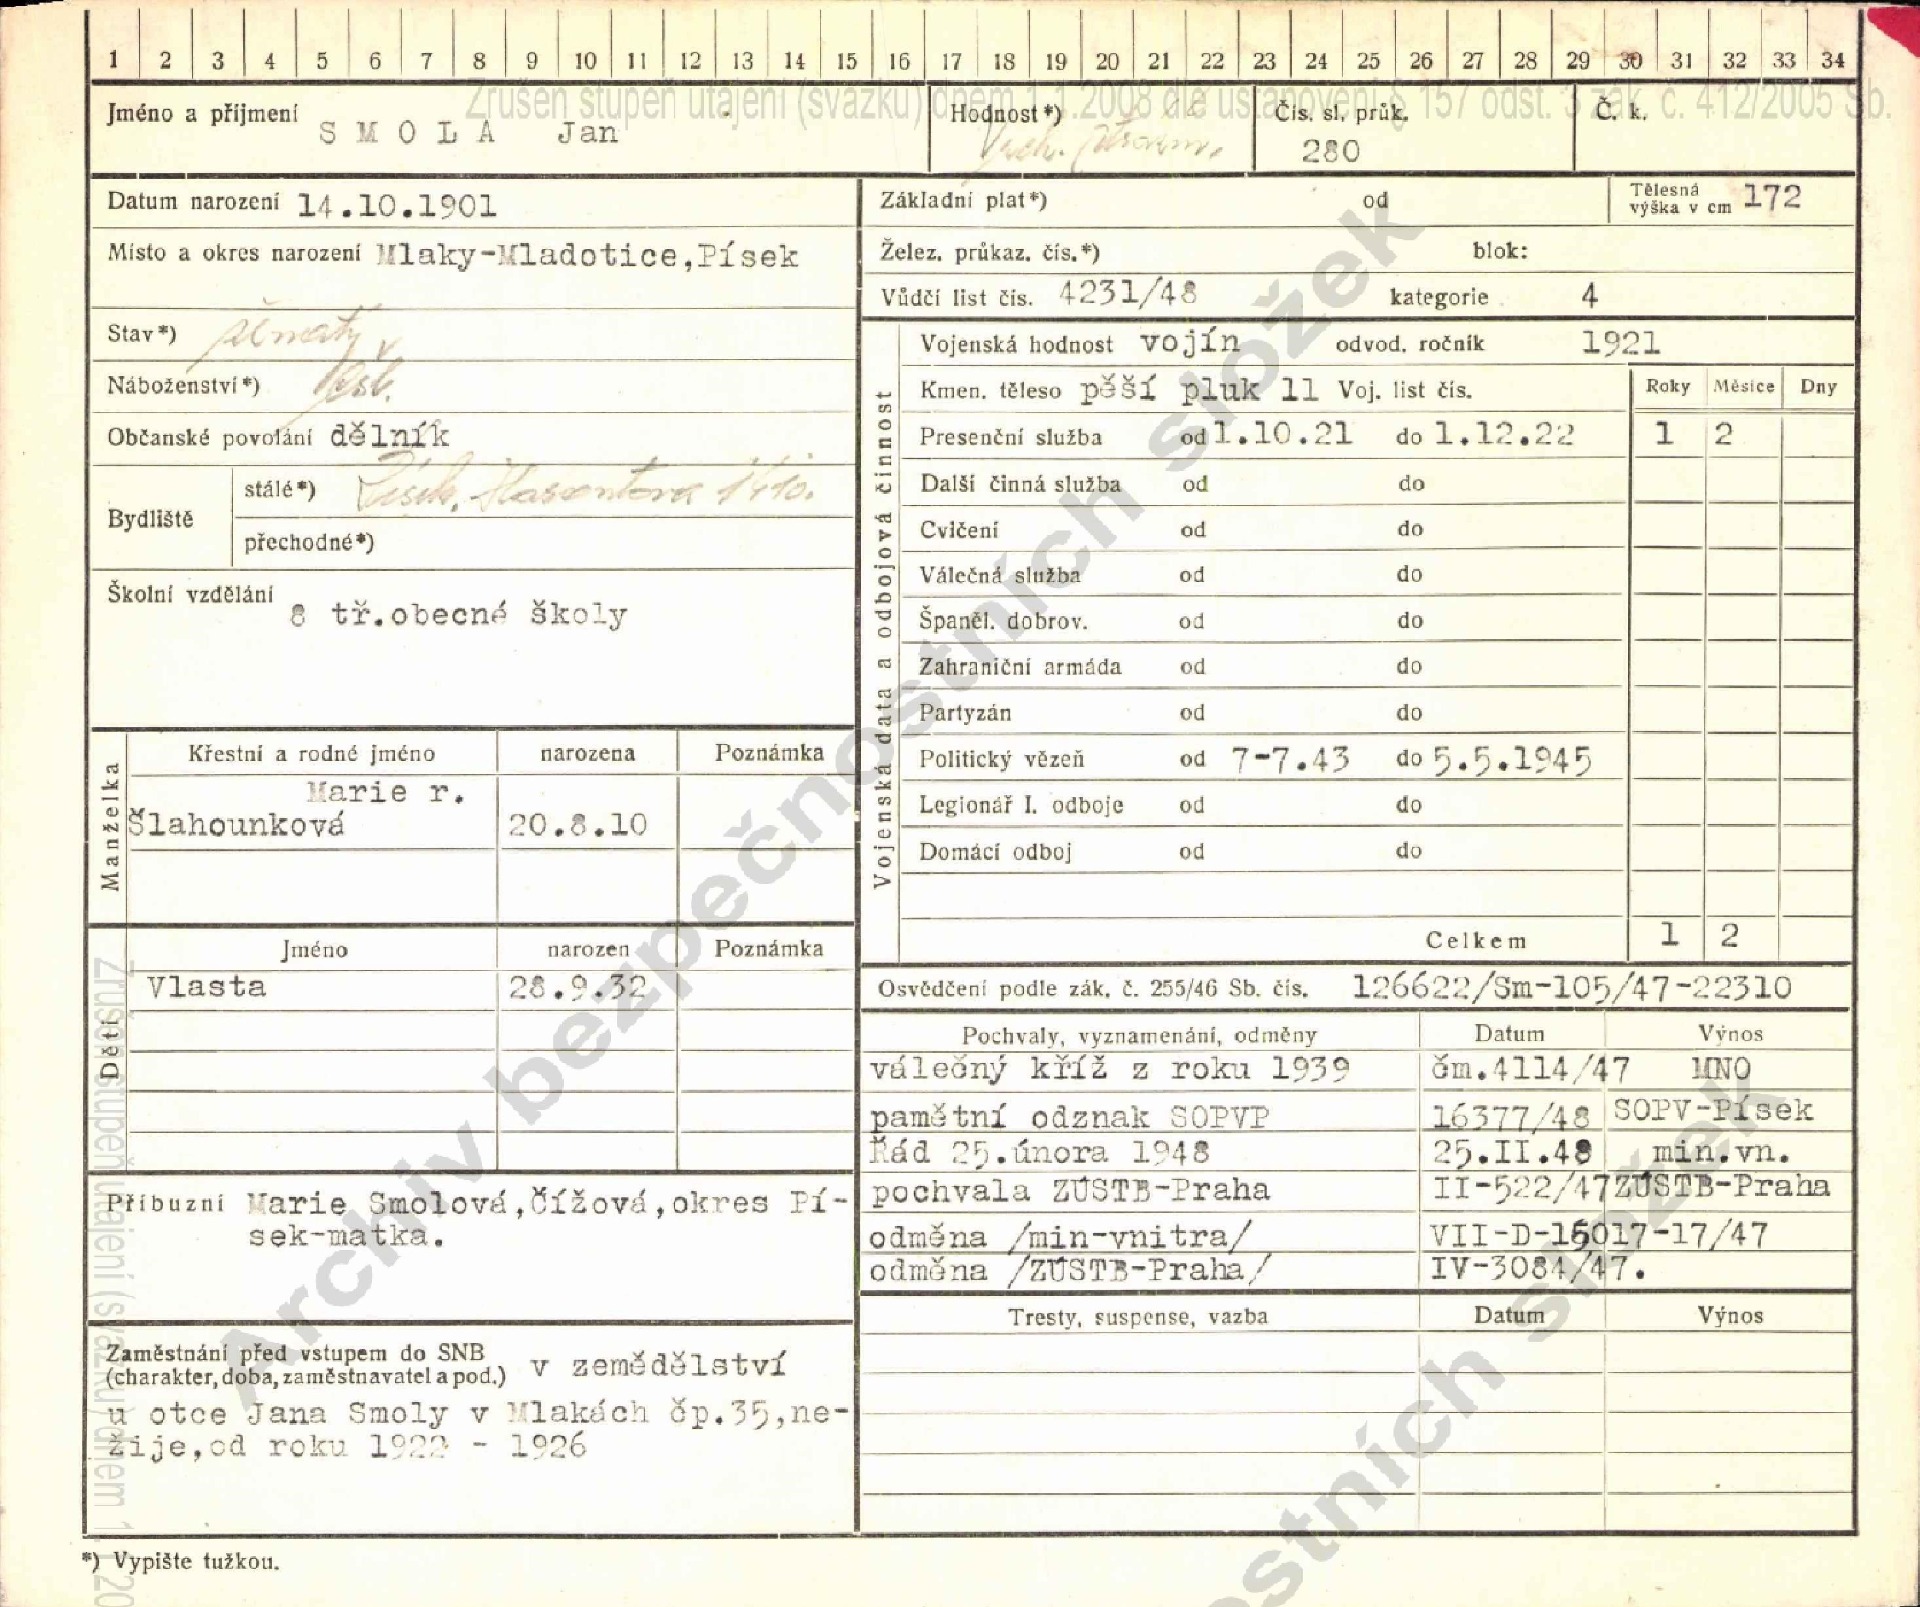 1 2 3 4 5 6 7 8 9 10 11 12 13 14 15 16 17 18 19 20 21 22 23 24 25 26 27 28 29 30 31 32 33 34
Zrušen stupeň utajení (svazku) dnem 1.1.2008 dle ustanovení § 157 odst. 3 zák. č. 412/2005 Sb.
Jméno a příjmení SMOLA Jan
Hodnost*)
Čís. sl. průk. 280
Č. k.
Datum narození 14.10.1901
Místo a okres narození Mlaky-Mladotice,Písek
Stav*) ženatý
Náboženství*)
Občanské povolání dělník
Bydliště
stálé*) Písek, 1410.
přechodné*)
Školní vzdělání 8 tř.obecné školy
Manželka
Křestní a rodné jméno narozena Poznámka
Marie r.
Šlahounková 20.8.10
Děti
Jméno narozen Poznámka
Vlasta 28.9.32
Příbuzní Marie Smolová,Čížová,okres Pí-
sek-matka.
Zaměstnání před vstupem do SNB
(charakter, doba, zaměstnavatel a pod.) v zemědělství
u otce Jana Smoly v Mlakách čp.35,ne-
žije,od roku 1922 - 1926
*) Vypište tužkou.
Základní plat*) od
Tělesná výška v cm 172
Želez. průkaz. čís.*) blok:
Vůdčí list čís. 4231/48 kategorie 4
Vojenská data a odbojová činnost
Vojenská hodnost vojín odvod. ročník 1921
Kmen. těleso pěší pluk 11 Voj. list čís.
Roky Měsíce Dny
Presenční služba od 1.10.21 do 1.12.22 1 2
Další činná služba od do
Cvičení od do
Válečná služba od do
Španěl. dobrov. od do
Zahraniční armáda od do
Partyzán od do
Politický vězeň od 7-7.43 do 5.5.1945
Legionář I. odboje od do
Domácí odboj od do
Celkem 1 2
Osvědčení podle zák. č. 255/46 Sb. čís. 126622/Sm-105/47-22310
Pochvaly, vyznamenání, odměny Datum Výnos
válečný kříž z roku 1939 čm.4114/47 MNO
pamětní odznak SOPVP 16377/48 SOPV-Písek
Řád 25.února 1948 25.II.48 min.vn.
pochvala ZÚSTB-Praha II-522/47 ZÚSTB-Praha
odměna /min-vnitra/ VII-D-15017-17/47
odměna /ZÚSTB-Praha/ IV-3084/47.
Tresty, suspense, vazba Datum Výnos
Archiv bezpečnostních složek
Zrušen stupeň utajení (svazku) dnem 1.1.20
stních složek